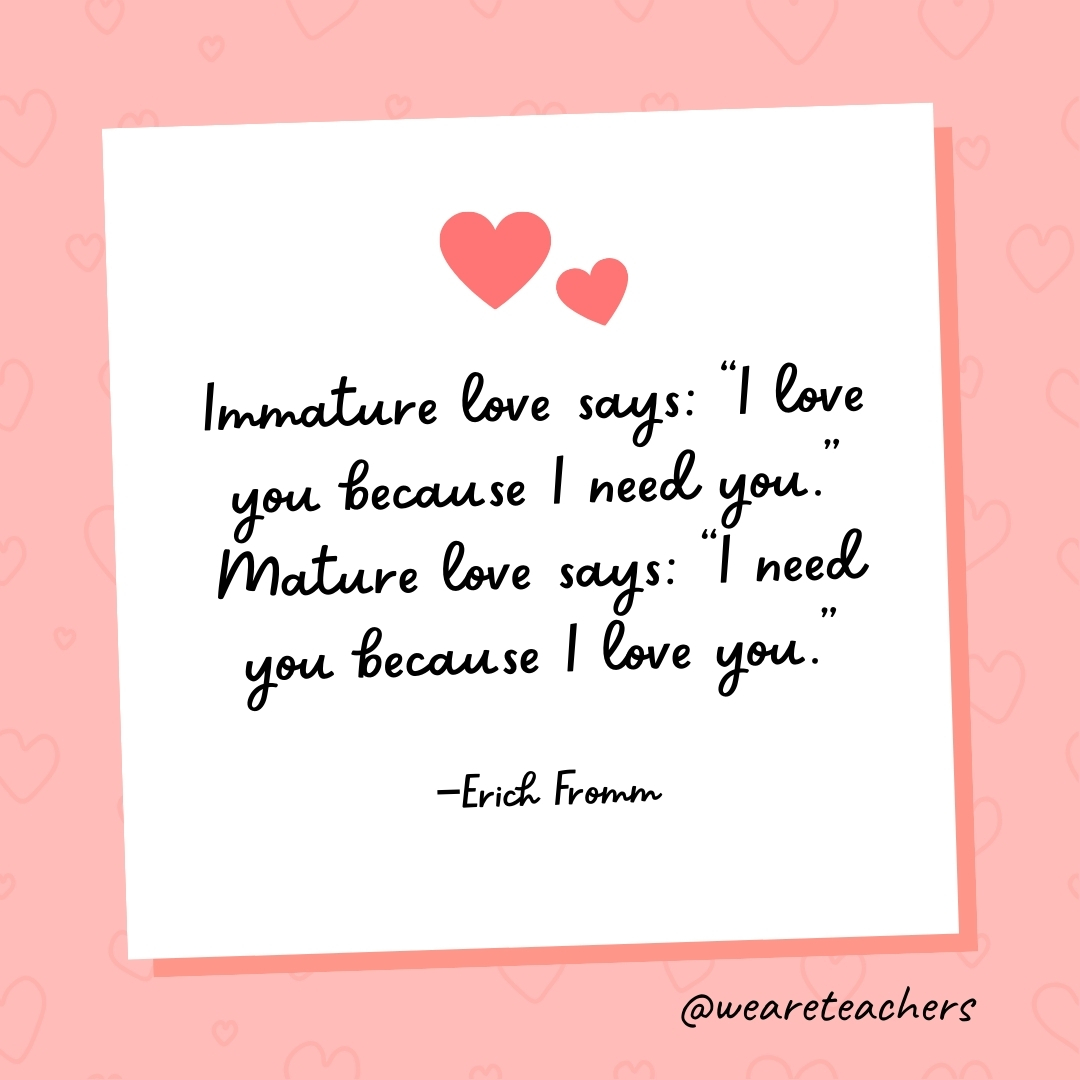 Immature love says: “I love
you because I need you.”
Mature love says: “I need
you because I love you.”
–Erich Fromm
@weareteachers